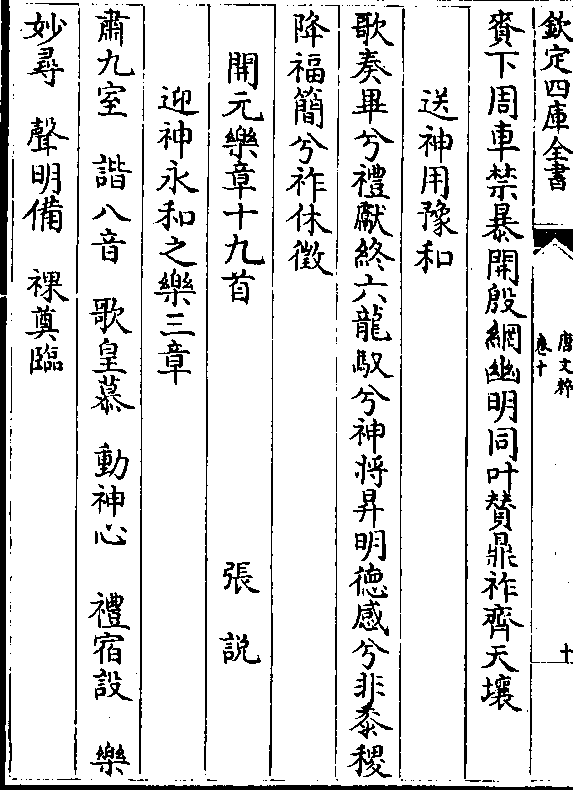 欽定四庫全書
唐文粹
卷十
十
賚下周車禁暴開殷網幽明同叶贊鼎祚齊天壤
送神用豫和
歌奏畢兮禮獻終六龍馭兮神將昇明德感兮非黍稷
降福簡兮祚休徵
開元樂章十九首 張說
迎神永和之樂三章
肅九室 諧八音 歌皇慕 動神心 禮宿設 樂
妙尋 聲明備 祼奠臨